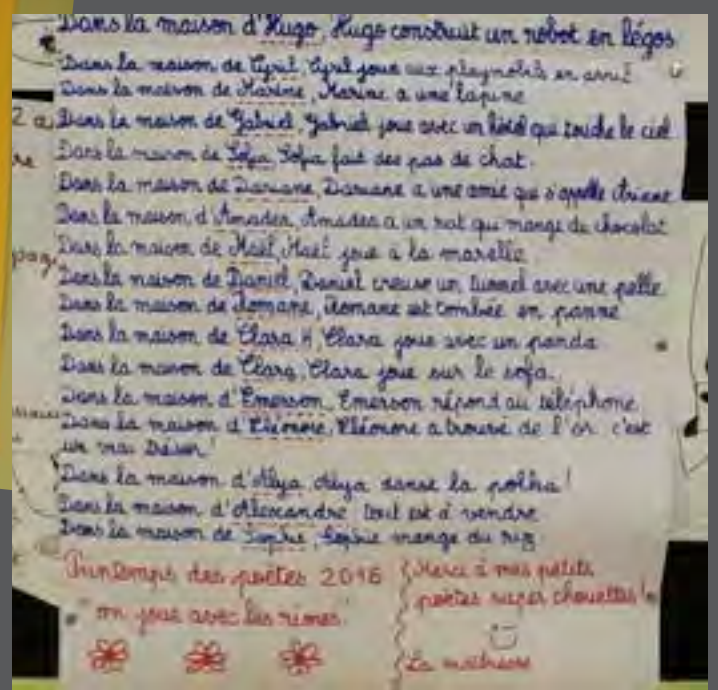 Dans la maison d'Hugo, Hugo construit un robot en légos
Dans la maison de Cyril, Cyril joue aux playmobils en avril
Dans la maison de Marine, Marine a une lapine
Dans la maison de Gabriel, Gabriel joue avec un hôtel qui touche le ciel
Dans la maison de Sofia, Sofia fait des pas de chat.
Dans la maison de Dariane, Dariane a une amie qui s'appelle Ariane
Dans la maison d'Amadea, Amadea a un rat qui mange du chocolat
Dans la maison de Maël, Maël joue à la marelle
Dans la maison de Daniel, Daniel creuse un tunnel avec une pelle
Dans la maison de Romane, Romane est tombée en panne
Dans la maison de Clara H, Clara joue avec un panda
Dans la maison de Clara, Clara joue sur le sofa.
Dans la maison d'Emerson, Emerson répond au téléphone
Dans la maison d'Eléonore, Eléonore a trouvé de l'or c'est
un vrai trésor!
Dans la maison d'Alya Alya danse la polka!
Dans la maison d'Alexandre tout est à vendre
Dans la maison de Sophie, Sophie mange du riz
Printemps des poètes 2016
"on joue avec les rimes"
Merci à mes petits
poètes super chouettes!
La maîtresse